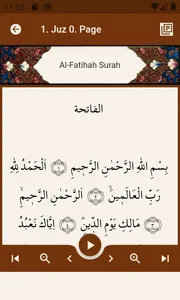 11:52
1. Juz 0. Page
Al-Fatihah Surah
الفاتحة
بِسْمِ اللّٰهِ الرَّحْمٰنِ الرَّح۪يمِ ﴿١﴾ اَلْحَمْدُ لِلّٰهِ
رَبِّ الْعَالَم۪ينَۙ ﴿٢﴾ اَلرَّحْمٰنِ الرَّح۪يمِۙ ﴿٣﴾
مَالِكِ يَوْمِ الدّ۪ينِۜ ﴿٤﴾ اِيَّاكَ نَعْبُدُ